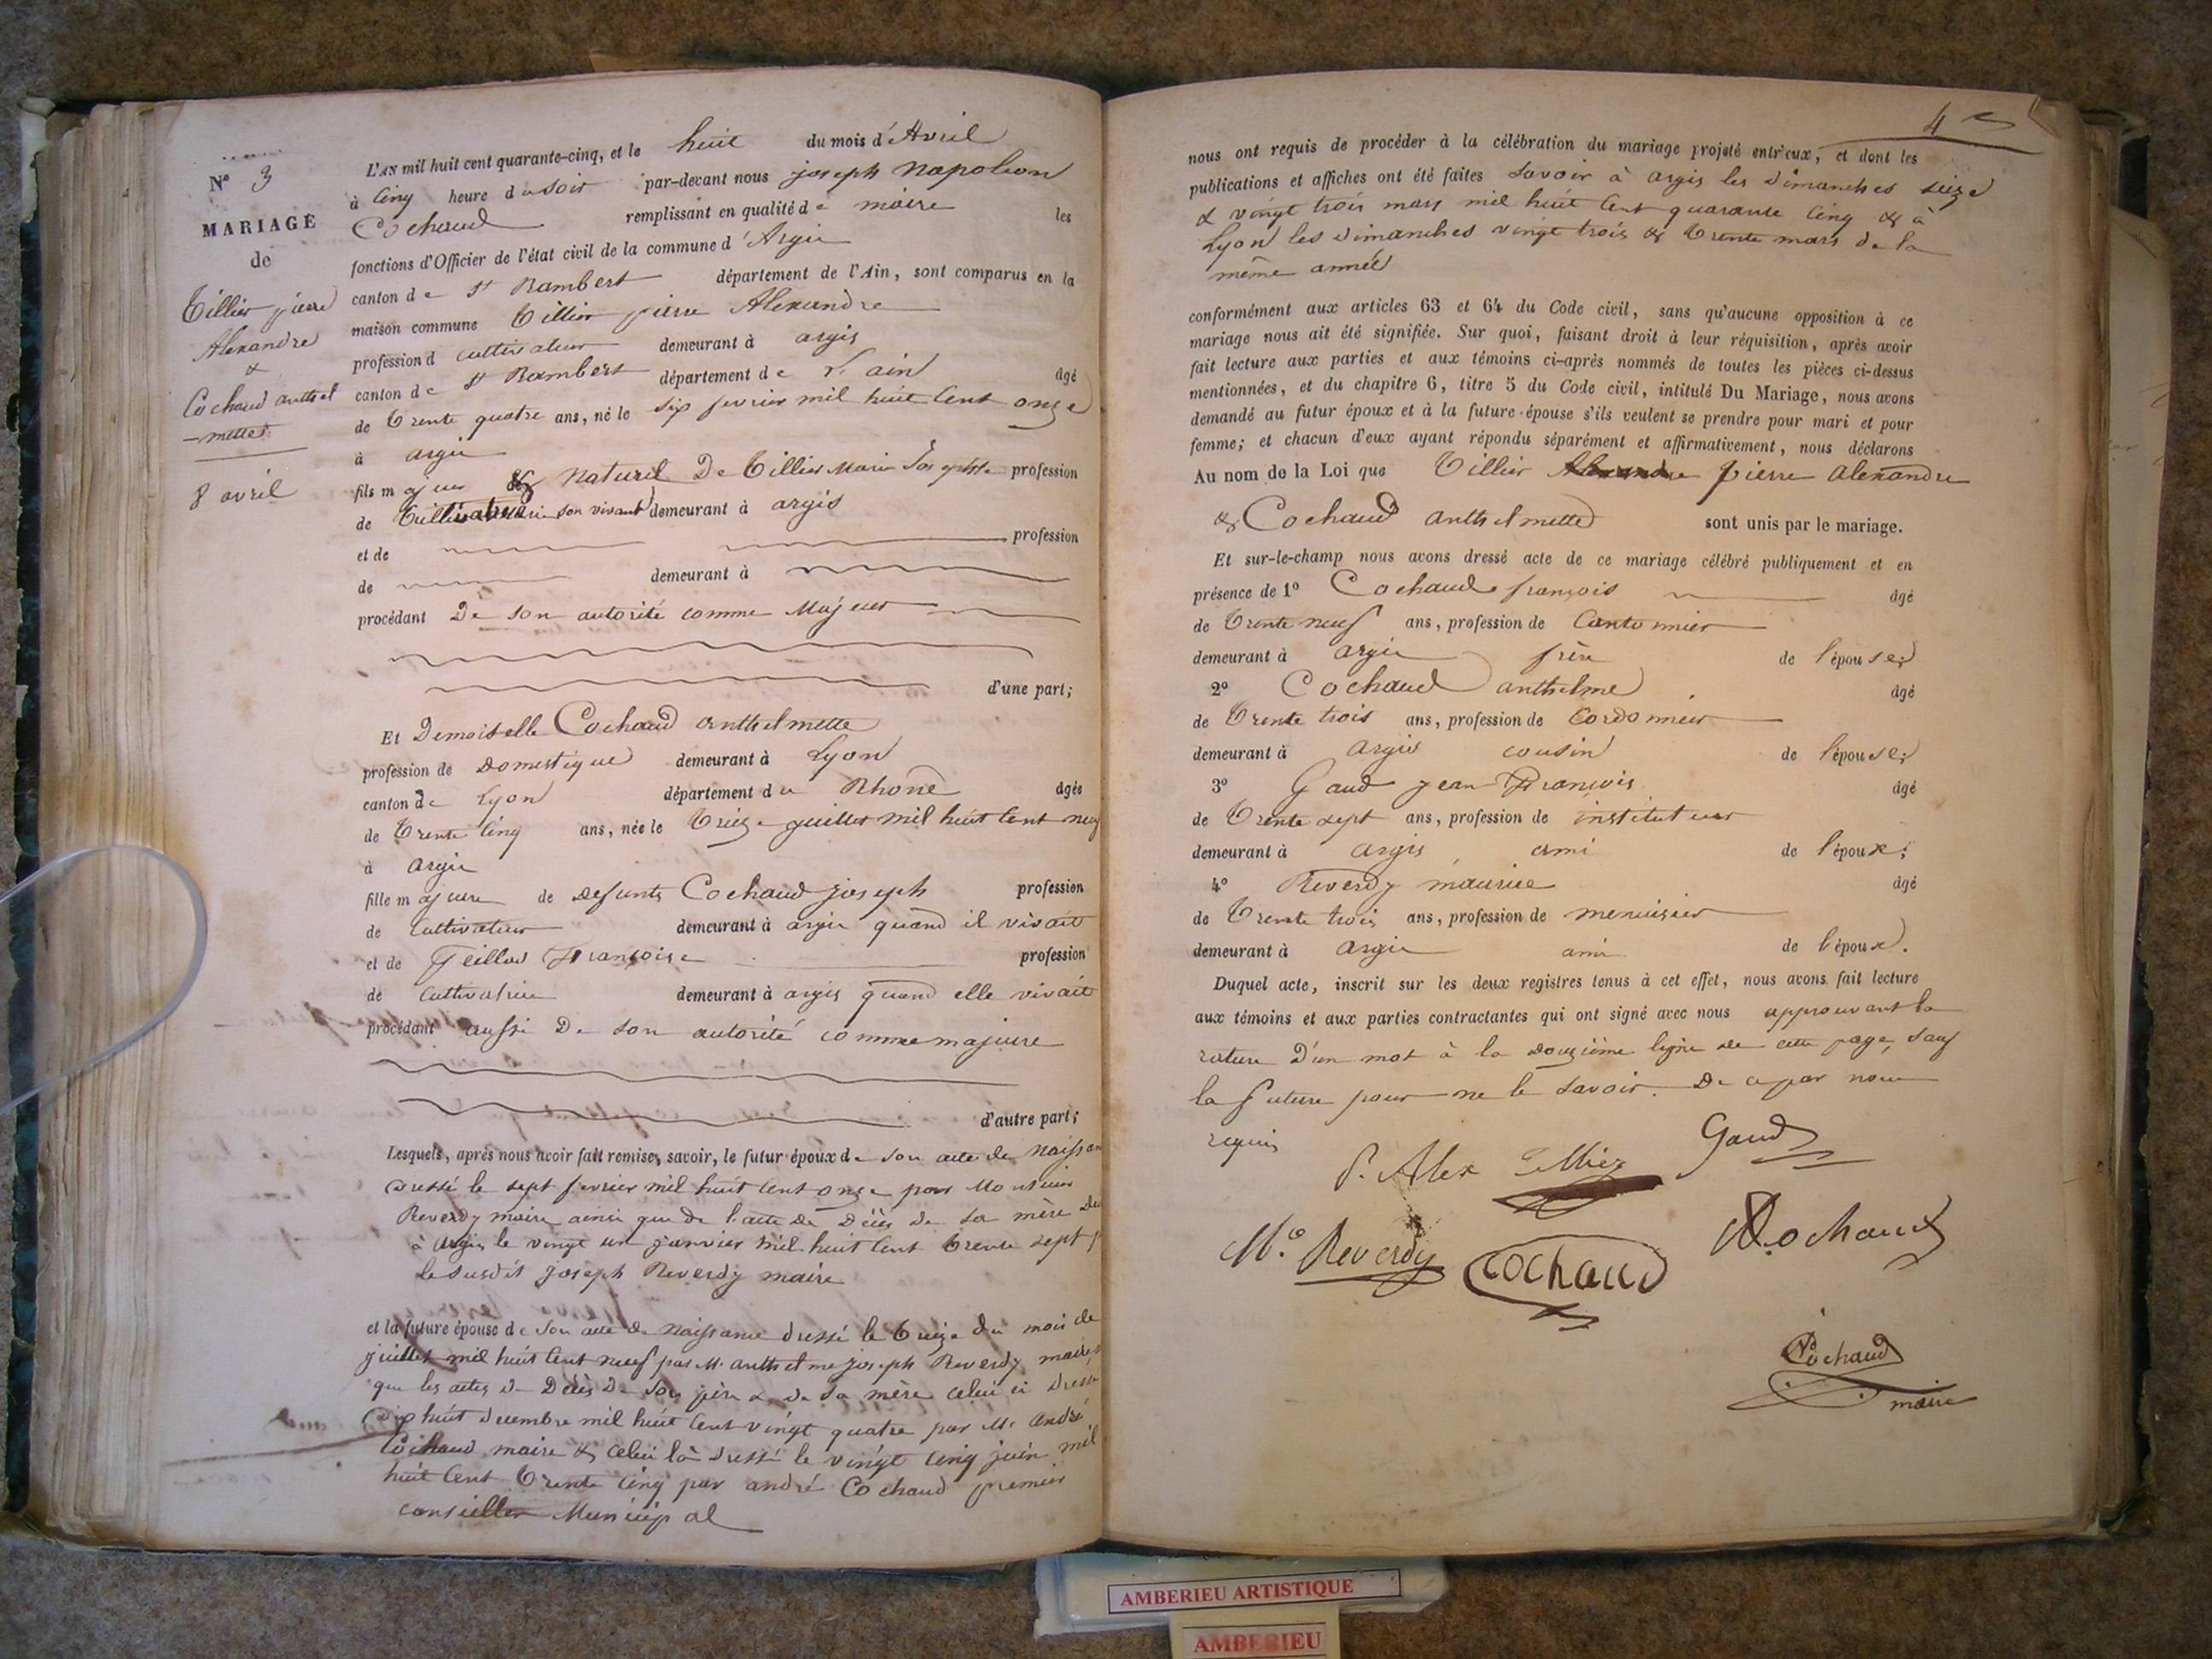 N° 3
MARIAGE
de
Tillier pierre
Alexandre
&
Cochaud anthel
-mette
8 avril
L'AN mil huit cent quarante-cinq, et le huit du mois d'Avril
à Cinq heure du soir par-devant nous joseph Napoleon
Cochaud remplissant en qualité de maire les
fonctions d'Officier de l'état civil de la commune d'Argis
canton de St Rambert département de l'Ain, sont comparus en la
maison commune Tillier pierre Alexandre
profession d cultivateur demeurant à argis
canton de St Rambert département de l'ain âgé
de Trente quatre ans, né le six fevrier mil huit Cent onze
à argis
fils majeur & Naturel De Tillier Marie Josephte profession
de son vivant demeurant à argis
et de profession
de demeurant à
procédant De son autorité comme Majeur
d'une part;
Et Demoiselle Cochaud anthelmette
profession de Domestique demeurant à Lyon
canton de Lyon département du Rhône âgée
de Trente Cinq ans, née le Treize juillet mil huit Cent neuf
à argis
fille majeure de defunts Cochaud joseph profession
de Cultivateur demeurant à argis quand il vivait
et de Teillon Françoise profession
de Cultivatrice demeurant à argis quand elle vivait
procédant aussi De son autorité comme majeure
d'autre part;
Lesquels, après nous avoir fait remise, savoir, le futur époux de son acte de Naissan
dressé le sept fevrier mil huit Cent onze par Monsieur
Reverdy maire ainsi que de l'acte De Décès De sa mère
à Argis le vingt un janvier mil huit Cent Trente sept
le susdit joseph Reverdy maire
et la future épouse de son acte de Naissance dressé le Treize du mois de
juillet mil huit Cent neuf par M. anthelme joseph Reverdy maire
que les actes De Décès De son père & De sa mère celui ci dressé
Dix huit decembre mil huit Cent vingt quatre par Mr André
Cochaud maire & Celui là dressé le vingt Cinq juin mil
huit Cent Trente Cinq par andré Cochaud premier
conseiller Municipal
4
nous ont requis de procéder à la célébration du mariage projeté entr'eux, et dont les
publications et affiches ont été faites savoir à argis les Dimanches seize
& vingt trois mars mil huit Cent quarante Cinq & à
Lyon les Dimanches vingt trois & Trente mars de la
même année
conformément aux articles 63 et 64 du Code civil, sans qu'aucune opposition à ce
mariage nous ait été signifiée. Sur quoi, faisant droit à leur réquisition, après avoir
fait lecture aux parties et aux témoins ci-après nommés de toutes les pièces ci-dessus
mentionnées, et du chapitre 6, titre 5 du Code civil, intitulé Du Mariage, nous avons
demandé au futur époux et à la future épouse s'ils veulent se prendre pour mari et pour
femme; et chacun d'eux ayant répondu séparément et affirmativement, nous déclarons
Au nom de la Loi que Tillier Alexandre pierre alexandre
& Cochaud anthelmette sont unis par le mariage.
Et sur-le-champ nous avons dressé acte de ce mariage célébré publiquement et en
présence de 1° Cochaud françois âgé
de Trente neuf ans, profession de Cantonnier
demeurant à argis frère de l'épouse;
2° Cochaud anthelme âgé
de Trente trois ans, profession de Cordonnier
demeurant à argis cousin de l'épouse;
3° Gaud jean François âgé
de Trente sept ans, profession de instituteur
demeurant à argis ami de l'époux;
4° Reverdy maurice âgé
de Trente trois ans, profession de menuisier
demeurant à argis ami de l'époux.
Duquel acte, inscrit sur les deux registres tenus à cet effet, nous avons fait lecture
aux témoins et aux parties contractantes qui ont signé avec nous approuvant la
rature D'un mot à la douzième ligne de cette page, sauf
la future pour ne le savoir. De ce par nous
requis
P. Alex Tillier Gaud
M.e Reverdy Cochaud Cochaud
Cochaud
maire
AMBERIEU ARTISTIQUE
AMBERIEU